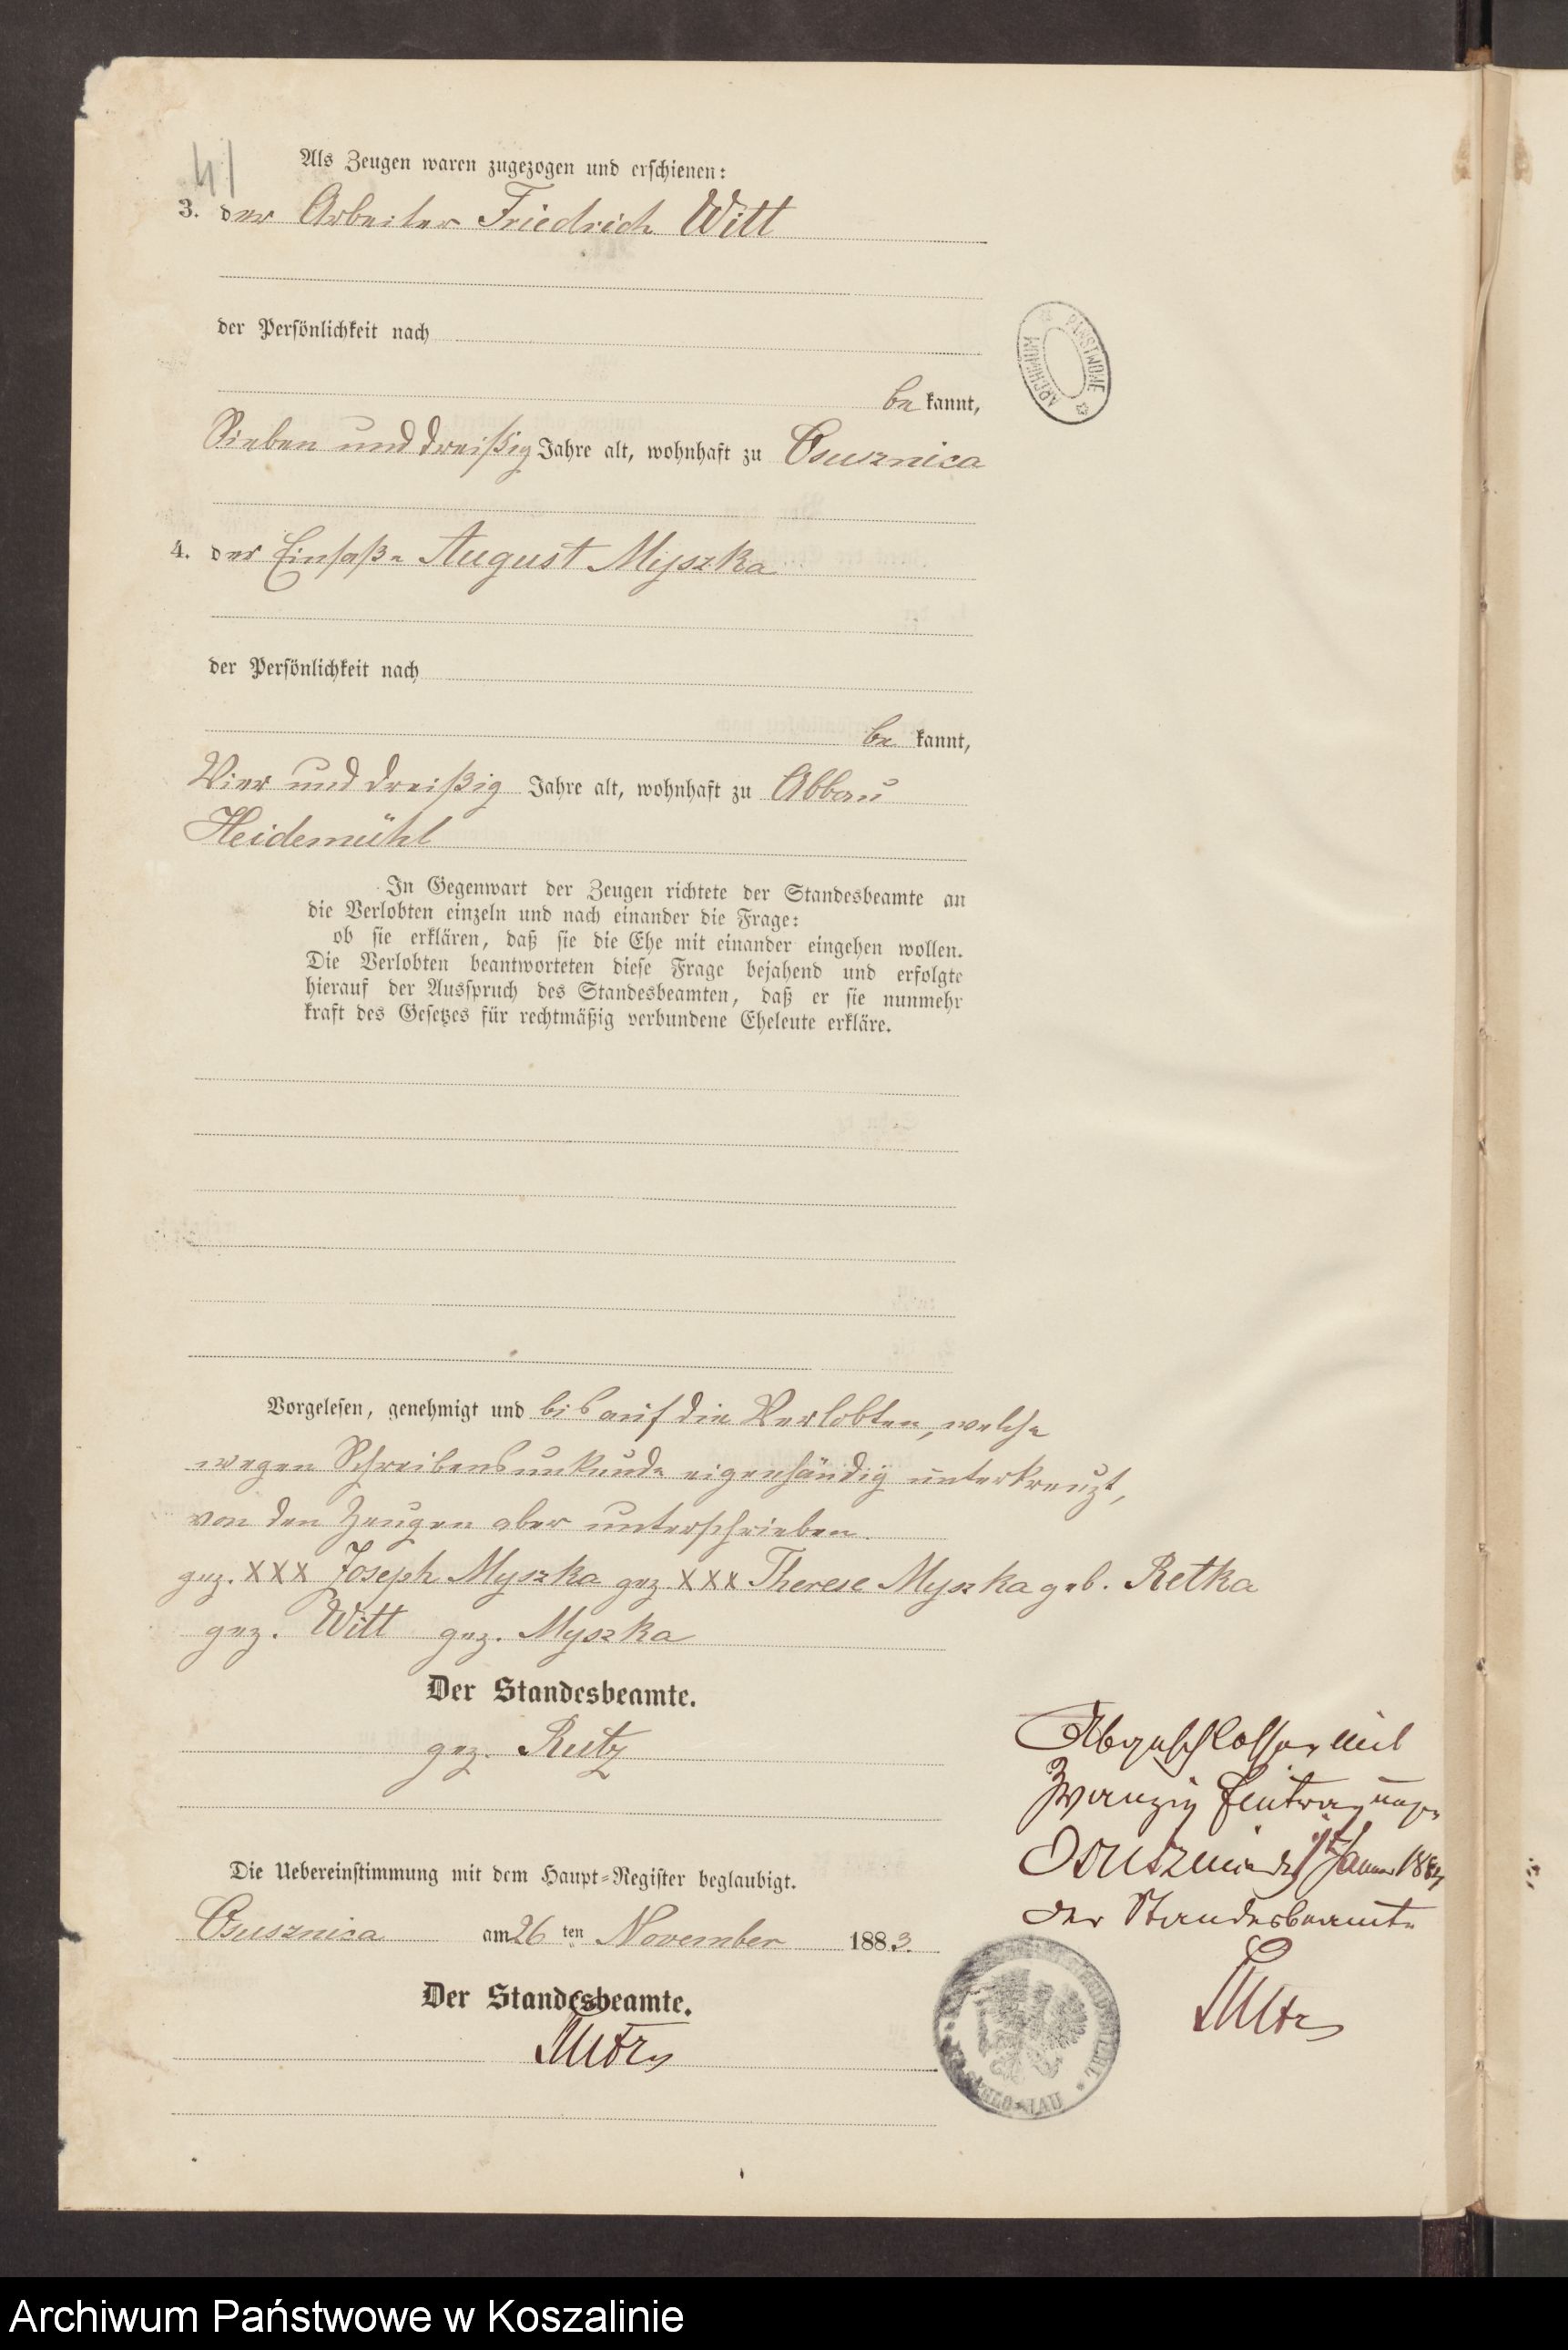 41
Als Zeugen waren zugezogen und erschienen:
3. der Arbeiter Friedrich Witt
der Persönlichkeit nach
be kannt,
Sieben und dreißig Jahre alt, wohnhaft zu Osusznica
4. der Einsaße August Myszka
der Persönlichkeit nach
be kannt,
Vier und dreißig Jahre alt, wohnhaft zu Abbau
Heidemühl
In Gegenwart der Zeugen richtete der Standesbeamte an
die Verlobten einzeln und nach einander die Frage:
ob sie erklären, daß sie die Ehe mit einander eingehen wollen.
Die Verlobten beantworteten diese Frage bejahend und erfolgte
hierauf der Ausspruch des Standesbeamten, daß er sie nunmehr
kraft des Gesetzes für rechtmäßig verbundene Eheleute erkläre.
Vorgelesen, genehmigt und bis auf die Verlobten, welche
wegen Schreibensunkunde eigenhändig unterkreuzt,
von den Zeugen aber unterschrieben.
gez. XXX Joseph Myszka gez XXX Therese Myszka geb. Retka
gez. Witt gez. Myszka
Der Standesbeamte.
gez. Rutz
Die Uebereinstimmung mit dem Haupt-Register beglaubigt.
Osusznica am 26 ten November 1883.
Der Standesbeamte.
Rutz
Abgeschlossen mit
Zwanzig Eintragungen
Januar
der Standesbeamte
Rutz
ARCHIWUM PAŃSTWOWE
Archiwum Państwowe w Koszalinie